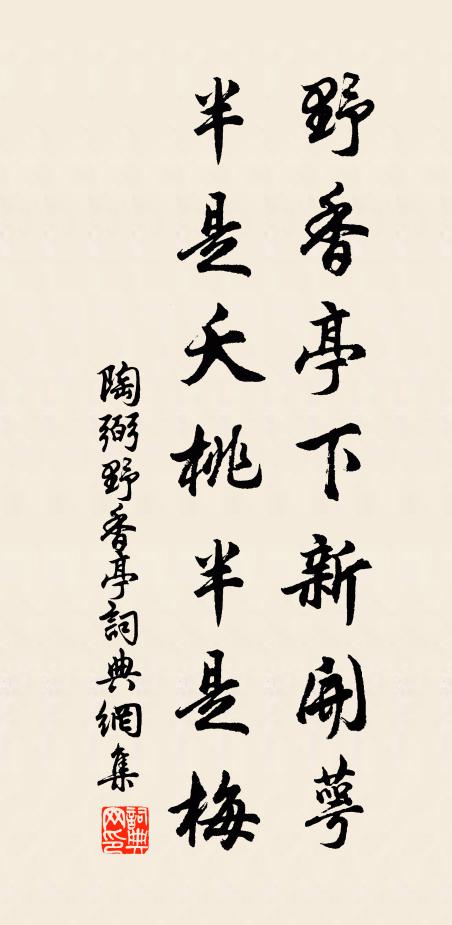 野香亭下新開萼
半是夭桃半是梅
陶弼野香亭詞典網集
詞典網印